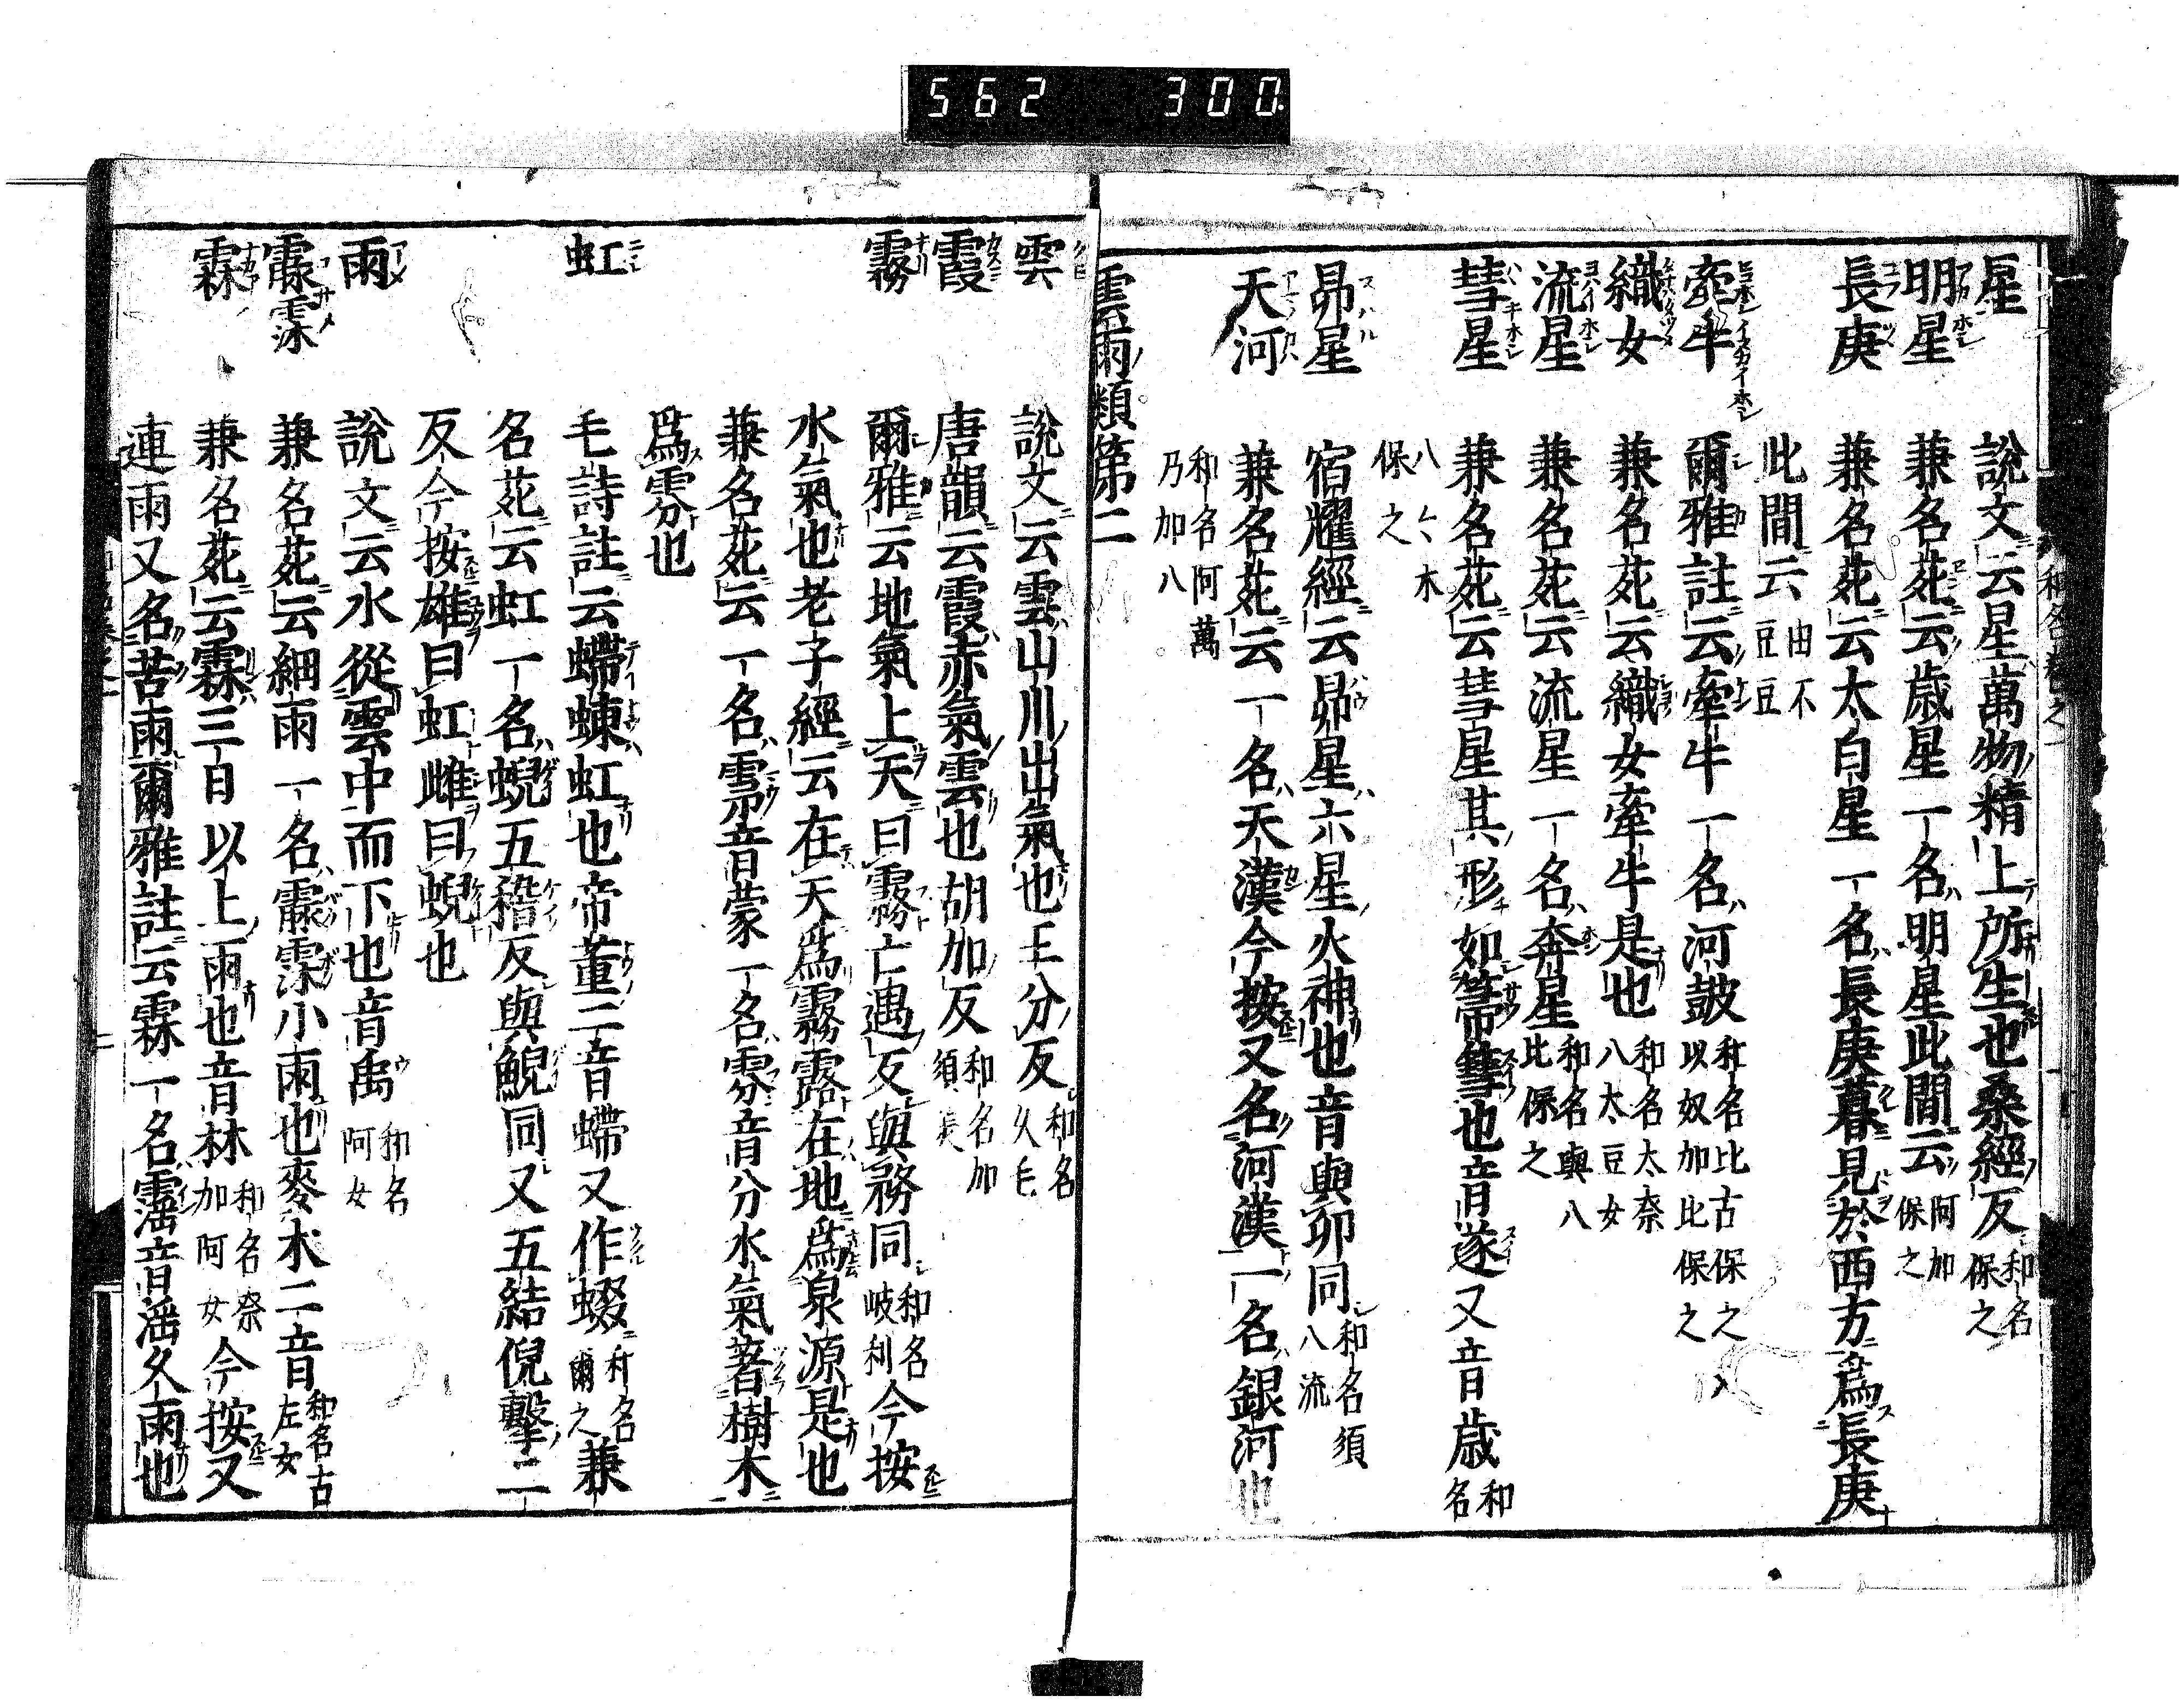 562 300
星 說文云星萬物精上所生也桑經反和名保之
明星 兼名苑云歳星一名明星此間云阿加保之
長庚 兼名苑云太白星一名長庚暮見於西方爲長庚
此間云由不豆豆
牽牛 爾雅註云牽牛一名河皷和名比古保之以奴加比保之
織女 兼名苑云織女牽牛是也和名太奈八太豆女
流星 兼名苑云流星一名奔星和名與八比保之
彗星 兼名苑云彗星其形如箒篲也音遂又音歳和名
八八木保之
昴星 宿耀經云昴星六星火神也音與卯同和名須八流
天河 兼名苑云一名天漢今按又名河漢一名銀河也
和名阿萬乃加八
雲雨類第二
雲 說文云雲山川出氣也王分反和名久毛
霞 唐韻云霞赤氣雲也胡加反和名加須美
霧 爾雅云地氣上天曰霧亡遇反與務同和名岐利今按
水氣也老子經云在天爲霧露在地爲泉源是也
兼名苑云一名雺音蒙一名雰音分水氣著樹木
爲雰也
虹 毛詩註云螮蝀虹也帝董二音螮又作蝃和名爾之兼
名苑云虹一名蜺五稽反與鯢同又五結倪擊二
反今按雄曰虹雌曰蜺也
雨 說文云水從雲中而下也音禹和名阿女
霢霂 兼名苑云細雨一名霢霂小雨也麥木二音和名古左女
霖 兼名苑云霖三日以上雨也音林和名奈加阿女今按又
連雨又名苦雨爾雅註云霖一名霪音滛久雨也